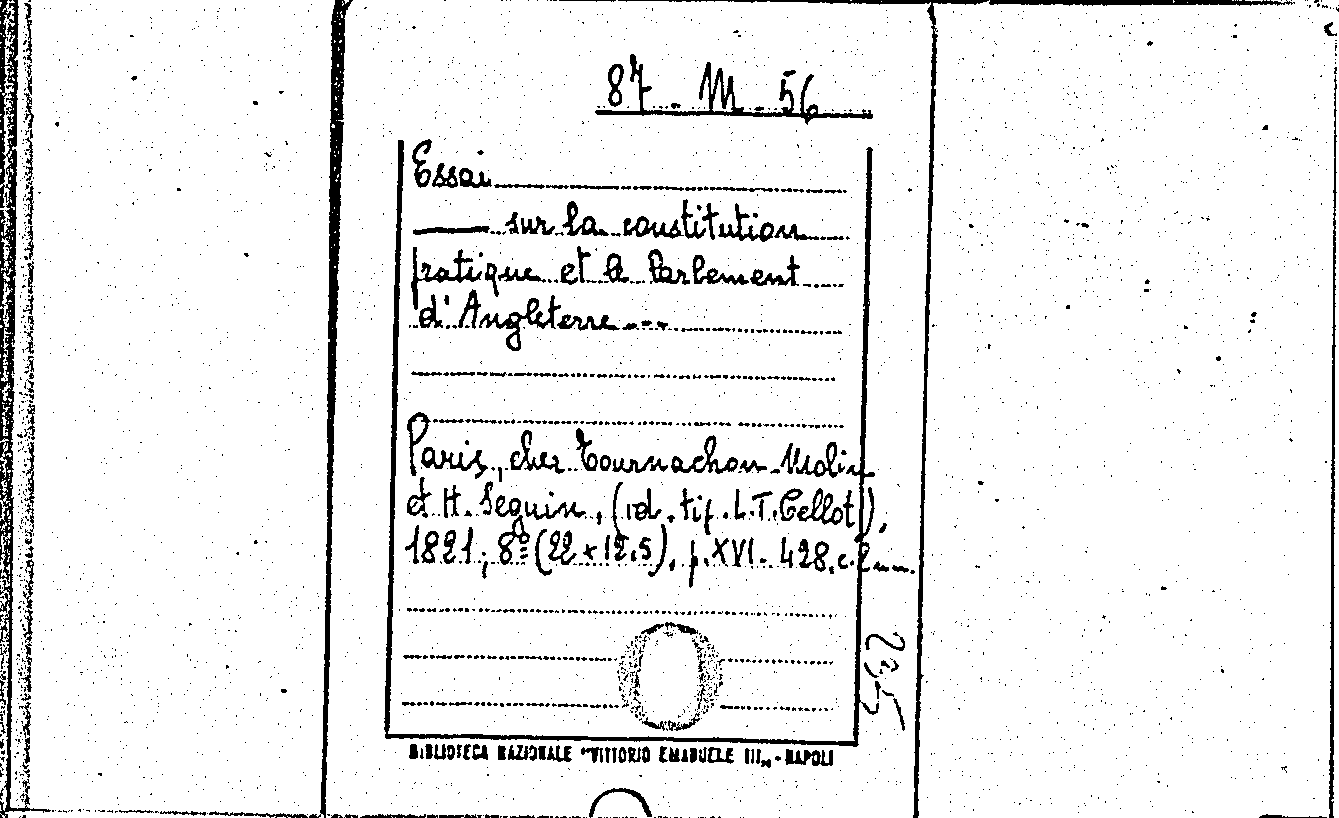 87 - M - 56
Essai
——— sur la constitution
pratique et le Parlement
d'Angleterre ---
Paris, chez Tournachon-Molin
et H. Seguin, (id. tip. L.T. Cellot),
1821; 8º (22 x 12.5), p. XVI - 428.
235
BIBLIOTECA NAZIONALE "VITTORIO EMANUELE III„ - NAPOLI